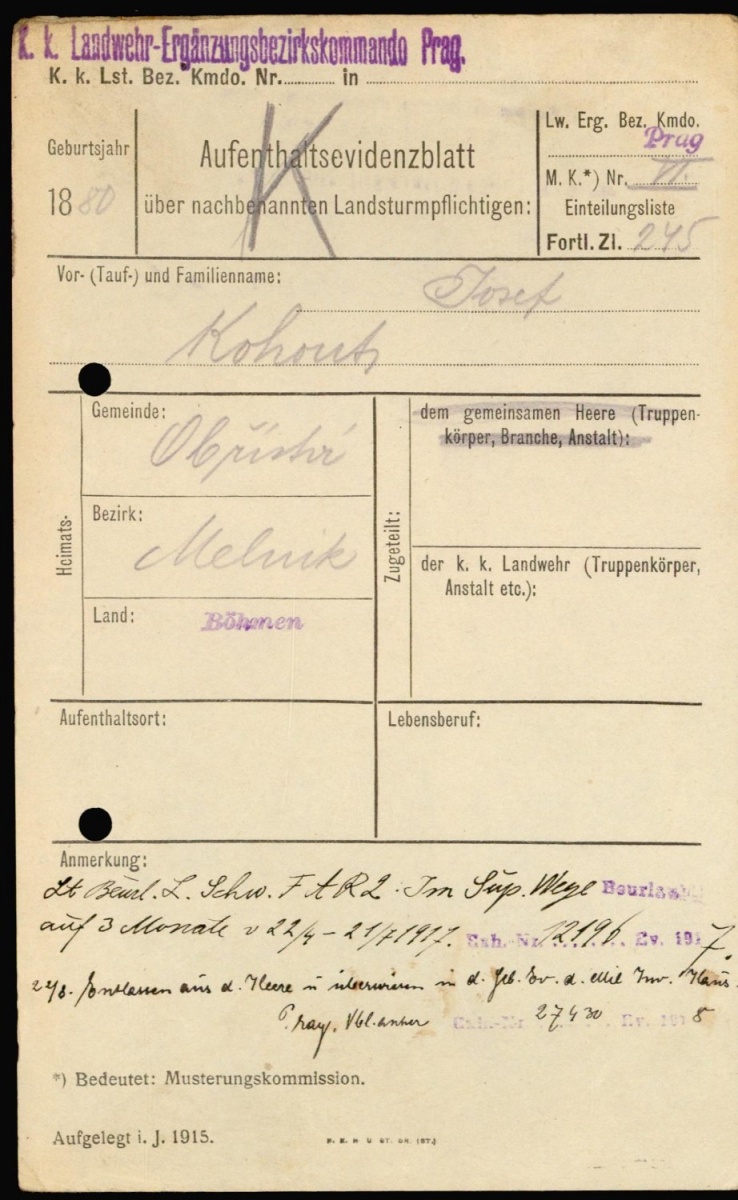 K. k. Landwehr-Ergänzungsbezirkskommando Prag.
K. k. Lst. Bez. Kmdo. Nr. in
Geburtsjahr
1880
K
Aufenthaltsevidenzblatt
über nachbenannten Landsturmpflichtigen:
Lw. Erg. Bez. Kmdo.
Prag
M. K.*) Nr. VI.
Einteilungsliste
Fortl. Zl. 245
Vor- (Tauf-) und Familienname:
Josef
Kohout
Heimats-
Gemeinde:
Obříství
Bezirk:
Melnik
Land: Böhmen
Zugeteilt:
dem gemeinsamen Heere (Truppen-
körper, Branche, Anstalt):
der k. k. Landwehr (Truppenkörper,
Anstalt etc.):
Aufenthaltsort:
Lebensberuf:
Anmerkung:
Lt Beurl. L. Schw. F A R 2. Im Sup. Wege
auf 3 Monate v 22/4 - 21/7 1917. Exh.-Nr. 12196 Ev. 1917.
22/8. Entlassen aus d. Heere u überwiesen in d. Geb. Ev. d. Mil Inv. Haus.
Prag. Exh.-Nr 27430 Ev. 1918
*) Bedeutet: Musterungskommission.
Aufgelegt i. J. 1915.